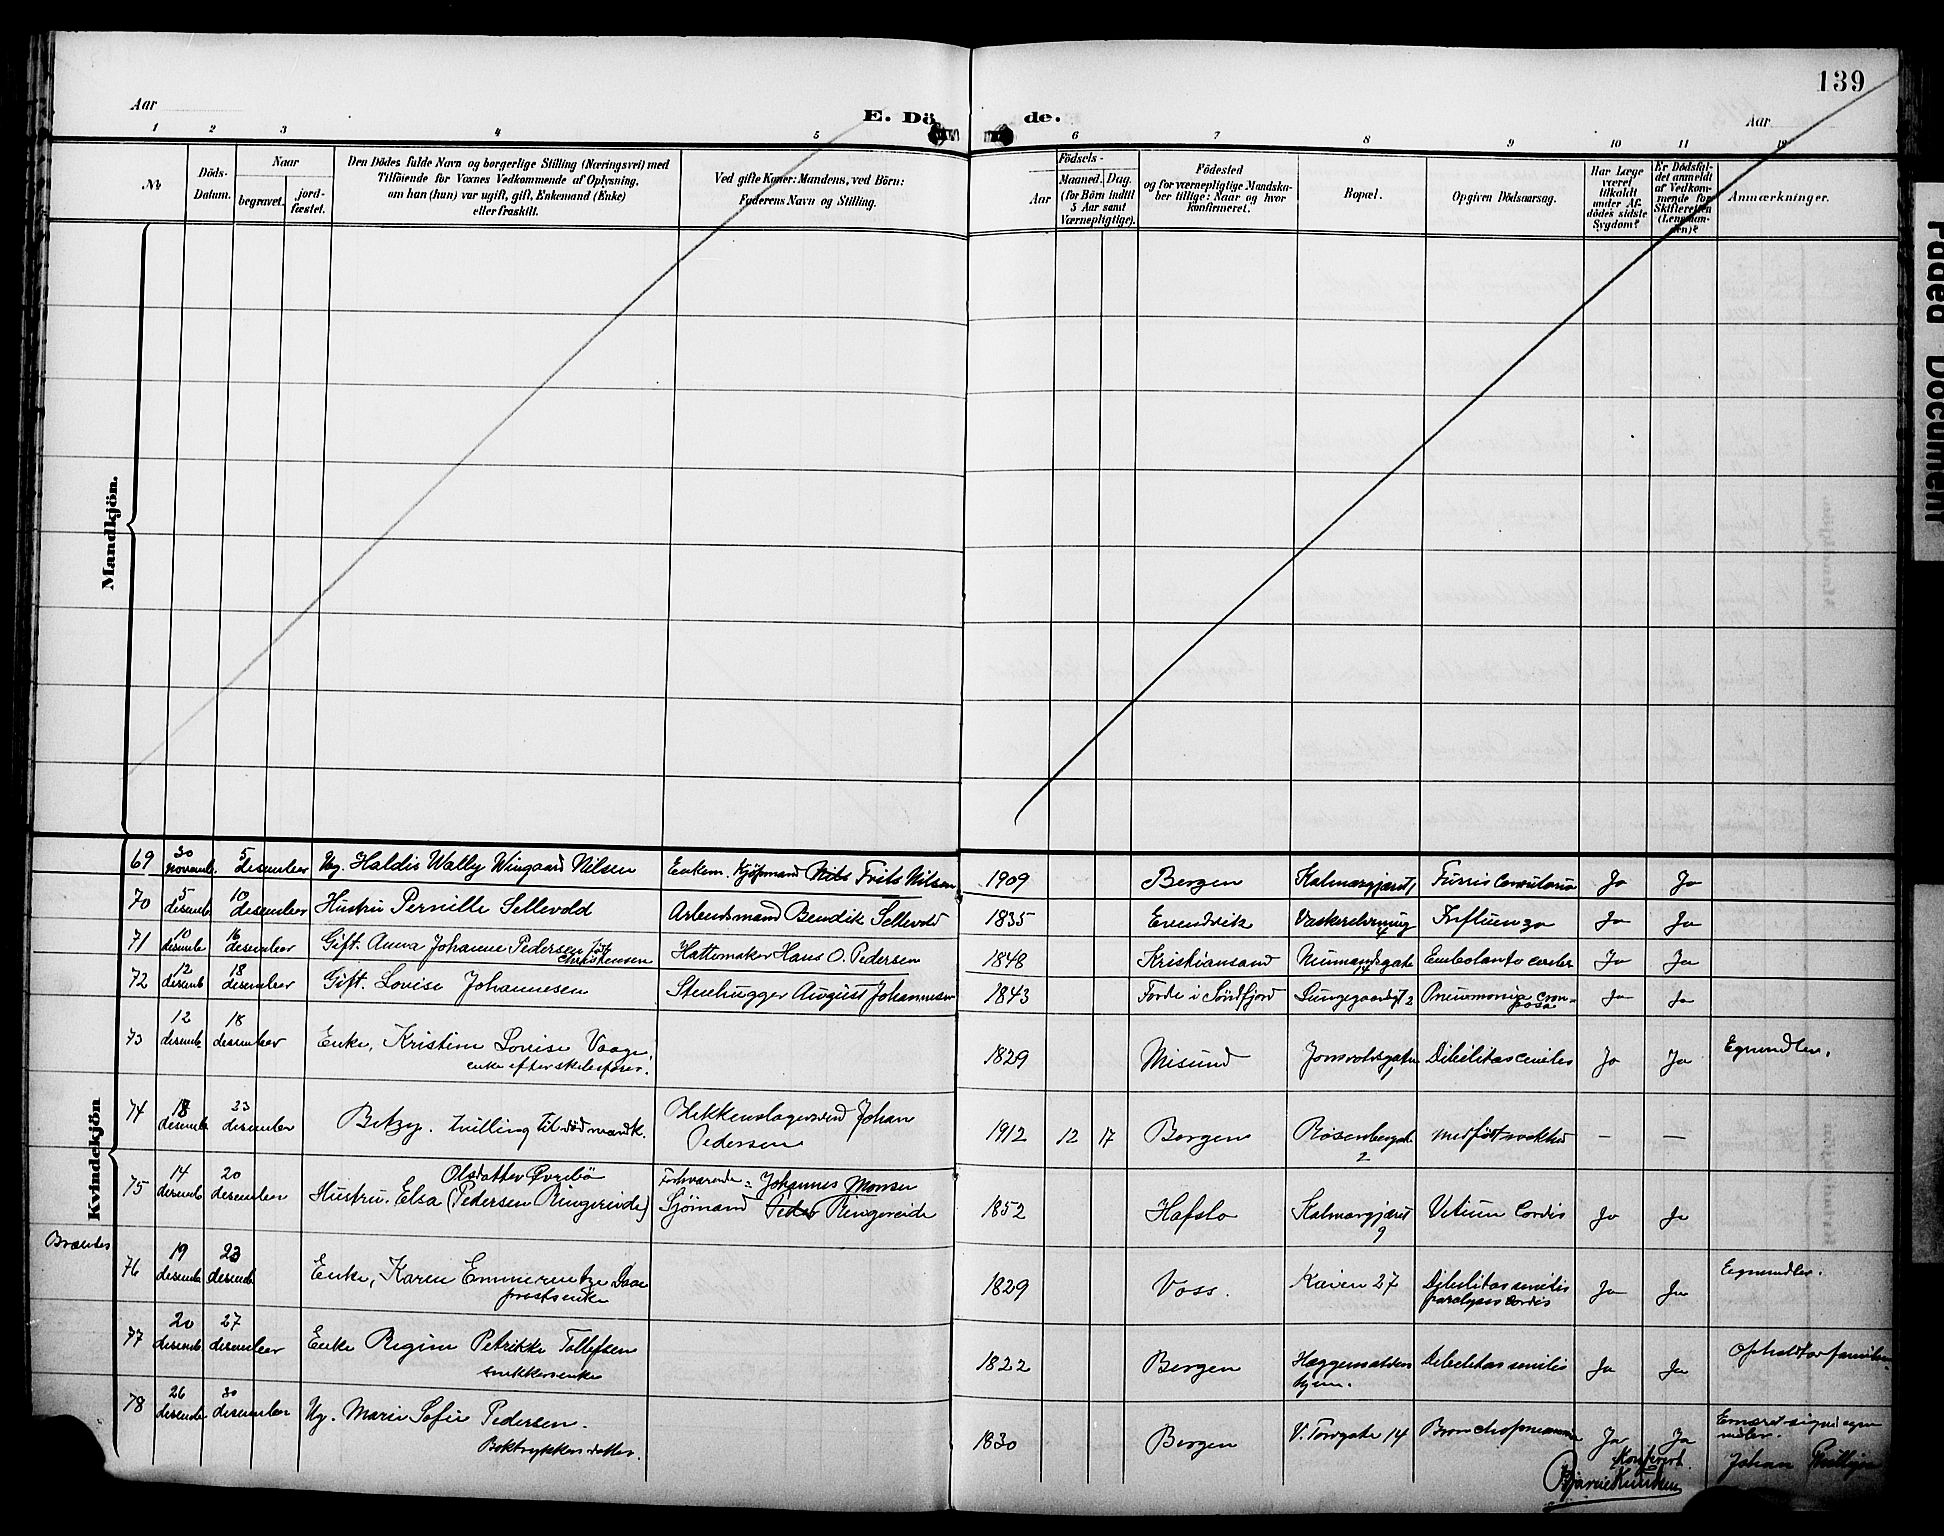 139
Aar
E. Dö de.
Aar
1 2 3 4 5 6 7 8 9 10 11 12
No
Döds-Datum.
Naar
begravet.
jord-fæstet.
Den Dödes fulde Navn og borgerlige Stilling (Næringsvei) med
Tilföiende for Voxnes Vedkommende af Oplysning,
om han (hun) var ugift, gift, Enkemand (Enke)
eller fraskilt.
Ved gifte Koner: Mandens, ved Börn:
Faderens Navn og Stilling.
Födsels-
Aar
Maaned. Dag.
(for Börn indtil
5 Aar samt
Værnepligtige).
Födested
og for værnepligtige Mandska-
ber tillige: Naar og hvor
konfirmeret.
Bopæl.
Opgiven Dödsaarsag.
Har Læge
været
tilkaldt
under Af-
dödes sidste
Sygdom?
Er Dödsfal-
det anmeldt
af Vedkom-
mende for
Skifteretten
(Lensman-
den)?
Anmærkninger.
Mandkjön.
Kvindekjön
69 30 novemb. 5 desember Ug. Haldis Wally Wingaard Nilsen Enkem. Kjøpmand Nils Frits Nilsen 1909 Bergen Kalmargjæret, Ja Ja
70 5 desemb 10 desember Hustru Pernille Sellevold Arbeidsmand Bendik Sellevold 1835 Evendvik Influenza Ja Ja
71 10 desemb 16 desember Gift. Anna Johanne Pedersen født Christensen Hattemaker Hans O. Pedersen 1848 Kristiansand Neumandsgate 14 Ja Ja
72 12 desemb 18 desember Gift. Lovise Johannesen Stenhugger August Johannesen 1843 Førde i Søndfjord Lungegaardsgt 2 Pneumonia crouposa Ja Ja
73 12 desemb. 18 desember Enke, Kristine Lovise Vaage,
enke efter skibsfører. 1829 Misund 1 Debilitas cenilis Ja Ja Egnemidler.
74 18 desemb 23 desember Betzy. tvilling til død mandk. Blikkenslagersvend Johan
Pedersen 1912 12 17 Bergen Rosenbergsgt. 2 medfødt svakhed — —
75 14 desemb 20 desember Hustru. Elsa (Pedersen Ringereide) Olsdatter Øvrebø Forhværende: Johannes Monsen
Sjömand Peder Ringereide 1852 Hafslo Kalmargjæret 9 Vitium Cordis Ja Ja
Brændes
76 19 desemb 23 desemb Enke, Karen Emmerentze Daae
prostsenke 1829 Voss. Kaien 27 Debilitas senilis
paralysis cordis Ja Ja Egnemidler.
77 20 desemb 27 desember Enke Regine Petrikke Tollefsen
snekkerenke 1822 Bergen Hæggernattens
hjem. Debilitas senilis Ja Ja Opholdt av familien
78 26 desemb 30 desember Ug. Marie Sofie Pedersen.
Boktrykkers datter. 1830 Bergen V. Torvgate 14 Bronchopneumonia Ja Ja Ernæret sig ved egne
midler.
Konferert.
Bjarne Knudsen
Johan
Faded Document